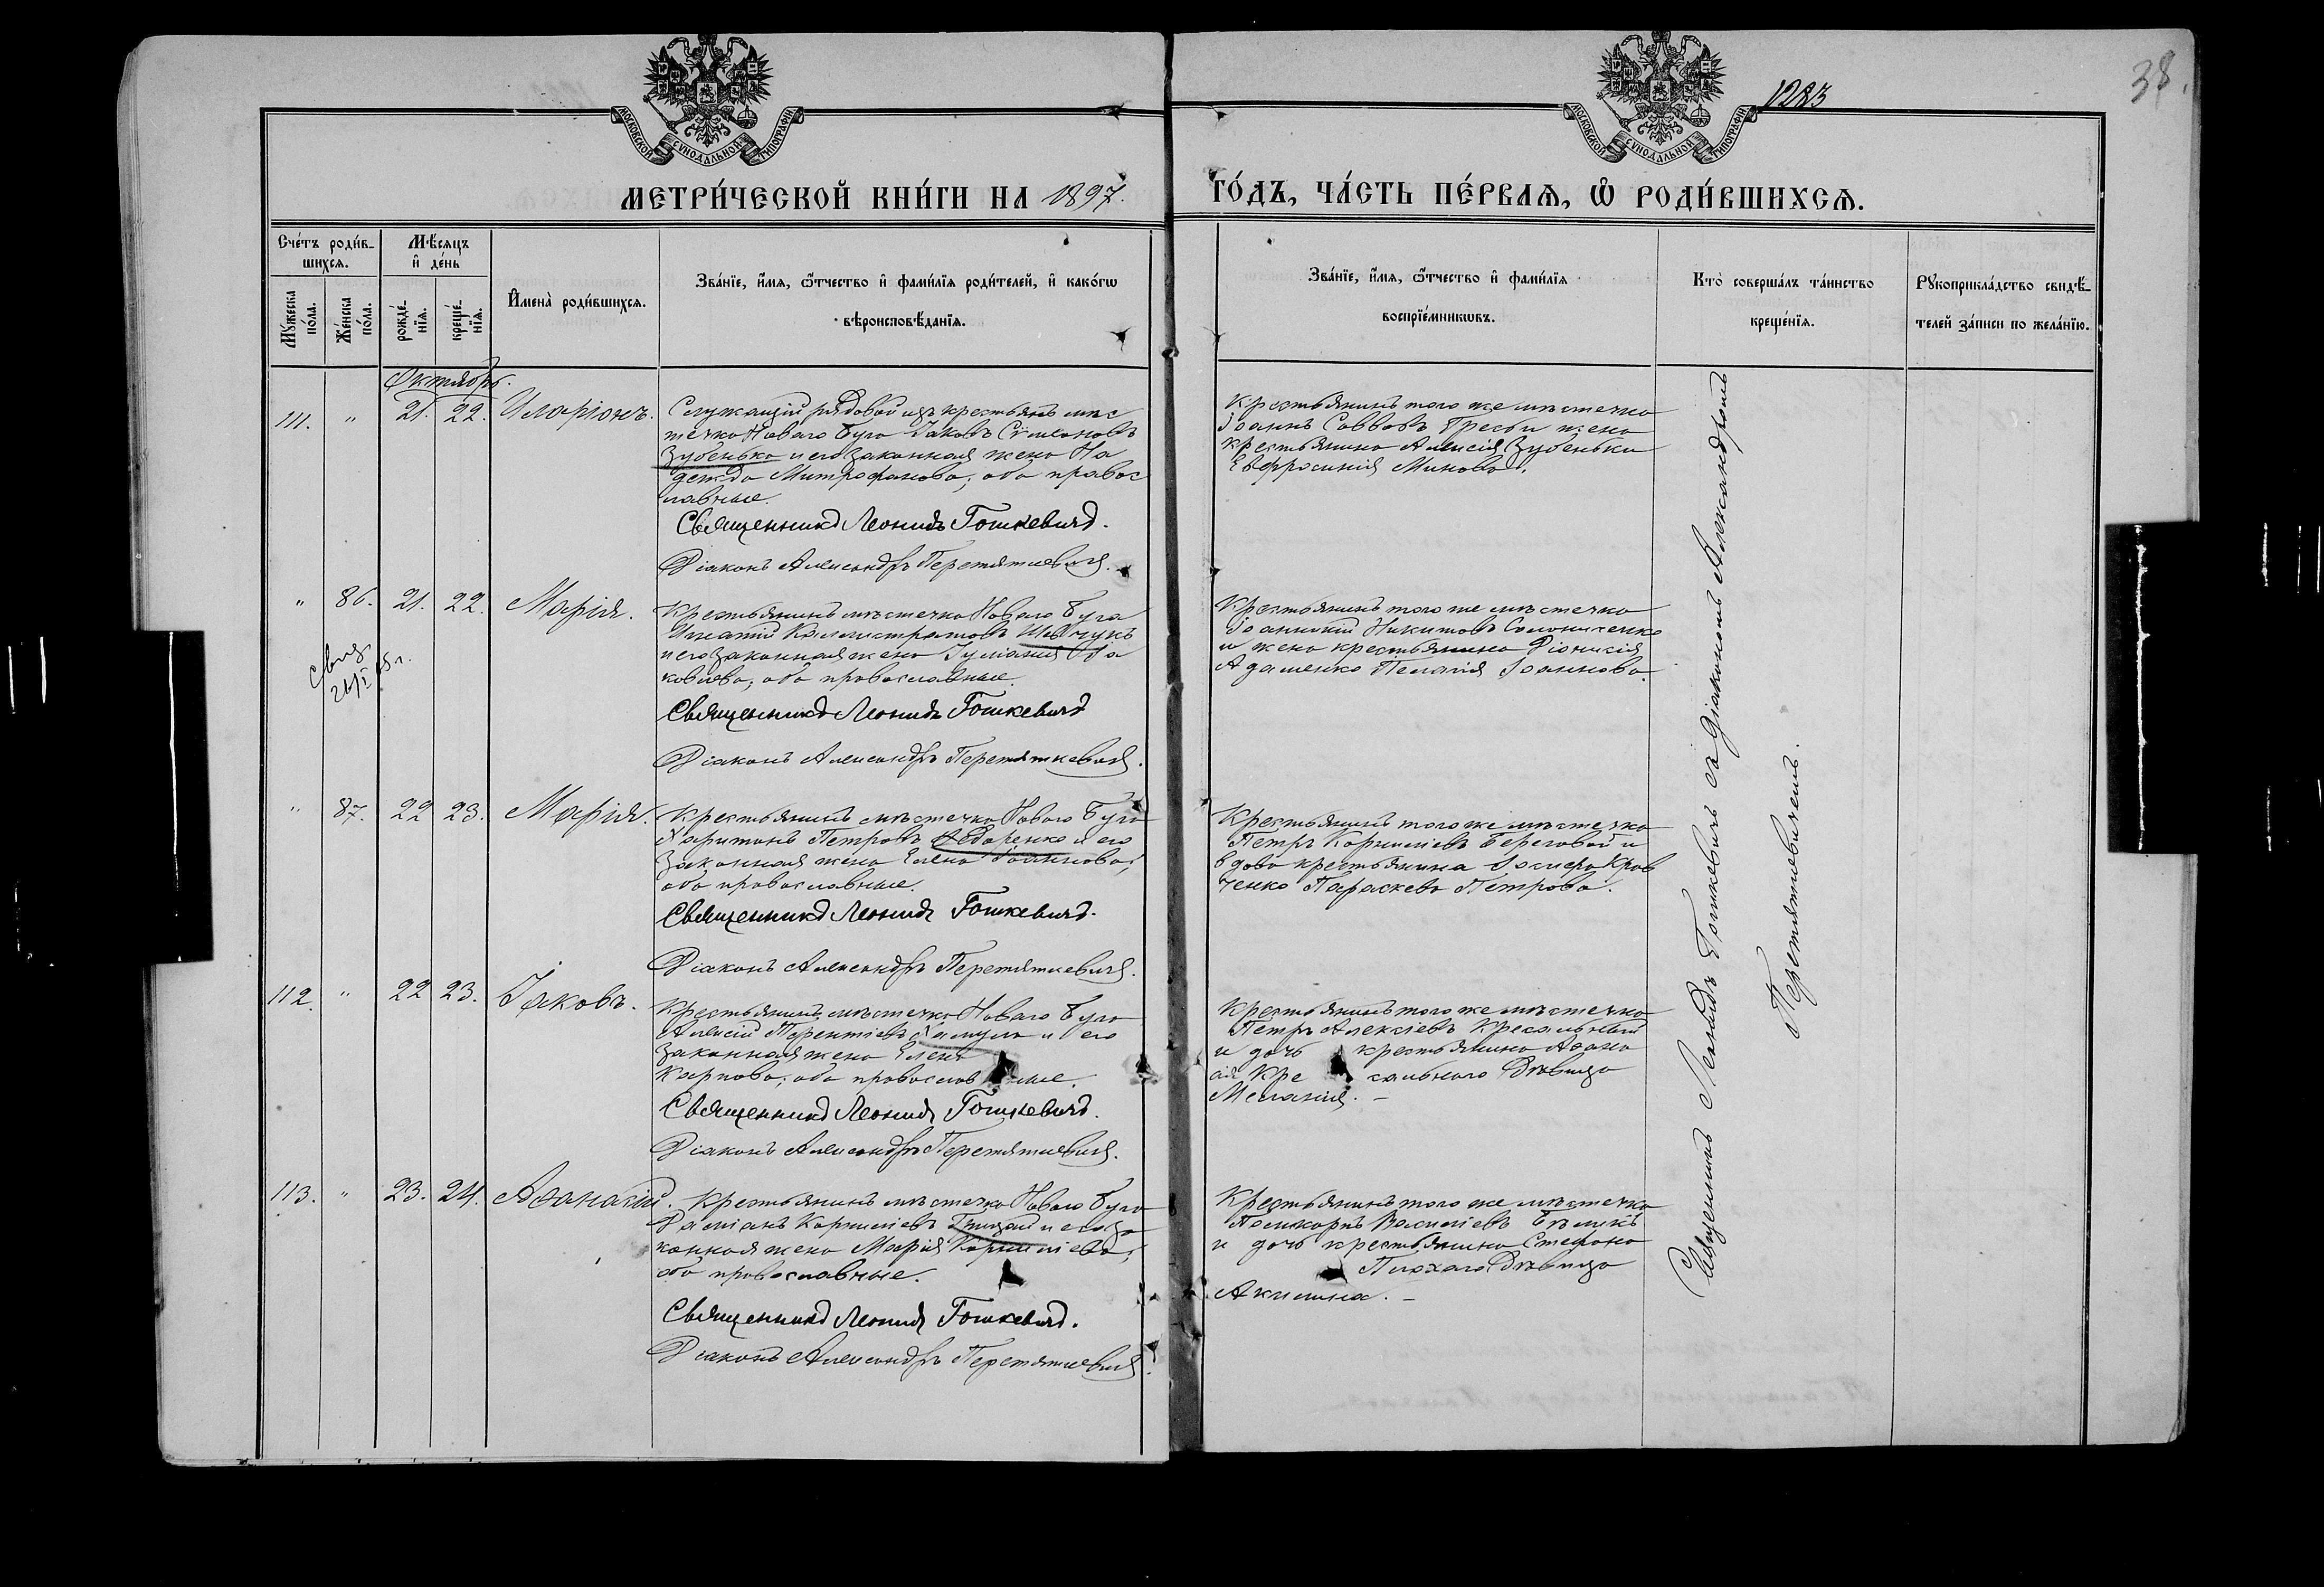 38.
1283
МОСКОВСКОЙ СУНОДАЛЬНОЙ ТИПОГРАФІИ
МОСКОВСКОЙ СУНОДАЛЬНОЙ ТИПОГРАФІИ
МЕТРИ́ЧЕСКОЙ КНИ́ГИ НА 1897. ГО́ДЪ, ЧА́СТЬ ПЕ́РВАѦ, Ѡ РОДИ́ВШИХСѦ.
Сче́тъ роди́в-
шихсѧ.
Мꙋ́жеска по́ла.
Же́нска по́ла.
Мѣ́сѧцъ и҆ де́нь
рожде́-нїѧ.
креще́-нїѧ.
И҆мена̀ роди́вшихсѧ.
Зва́нїе, и҆́мѧ, ѻ҆́тчество и҆ фами́лїѧ роди́телей, и҆ како́гѡ
вѣроисповѣ́данїѧ.
Зва́нїе, и҆́мѧ, ѻ҆́тчество и҆ фами́лїѧ
воспрїе́мникѡвъ.
Кто̀ соверша́лъ та́инство
креще́нїѧ.
Рꙋкоприкла́дство свидѣ́-
телей за́писи по жела́нїю.
Октябрь.
111. " 21. 22. Иларіонъ.
Служащій рядовой изъ крестьянъ мѣс
течка Новаго Буга Іаковъ Сѵмеоновъ
Зубенько и его законная жена На
дежда Митрофанова, оба правос
лавные.
Священникъ Леонидъ Гошкевичъ.
Діаконъ Александръ Перетяткевичъ.
Крестьянинъ того же мѣстечка
Іоаннъ Саввовъ жена
крестьянина Алексія Зубеньки
Евфросинія Минова.
" 86. 21. 22. Марія.
Свид.
26/I 05 г.
Крестьянинъ мѣстечка Новаго Буга
Игнатій Каллистратовъ Шевчукъ
и его законная жена Іуліанія Іа
ковлева, оба православные.
Священникъ Леонидъ Гошкевичъ
Діаконъ Александръ Перетяткевичъ.
Крестьянинъ того же мѣстечка
Іоанникій Никитовъ
и жена крестьянина Діонисія
Адаменко Пелагія Іоаннова.
" 87. 22 23. Марія.
Крестьянинъ мѣстечка Новаго Буга
Харитонъ Петровъ Ѳедоренко и его
законная жена Елена Іоаннова,
оба православные.
Священникъ Леонидъ Гошкевичъ.
Діаконъ Александръ Перетяткевичъ.
Крестьянинъ того же мѣстечка
Петръ Корниліевъ Береговой и
вдова крестьянина Кров
ченко Параскева Петрова.
112. " 22 23. Іаковъ.
Крестьянинъ мѣстечка Новаго Буга
Алексій Терентіевъ и его
законная жена Елена
Карпова, оба православные.
Священникъ Леонидъ Гошкевичъ.
Діаконъ Александръ Перетяткевичъ.
Крестьянинъ того же мѣстечка
Петръ Алексіевъ Кресальный
и дочь крестьянина Аѳана
сія Кресальнаго дѣвица
Меланія. —
113. " 23. 24. Аѳанасій.
Крестьянинъ мѣстечка Новаго Буга
Даміанъ Корниліевъ Грицай и его за
конная жена Марія Корниліева,
оба православные.
Священникъ Леонидъ Гошкевичъ.
Діаконъ Александръ Перетяткевичъ.
Крестьянинъ того же мѣстечка
Поликарпъ Василіевъ Бѣликъ
и дочь крестьянина Стефана
Плохаго дѣвица
Акилина. —
Священникъ Леонидъ Гошкевичъ съ діакономъ Александромъ
Перетяткевичемъ.